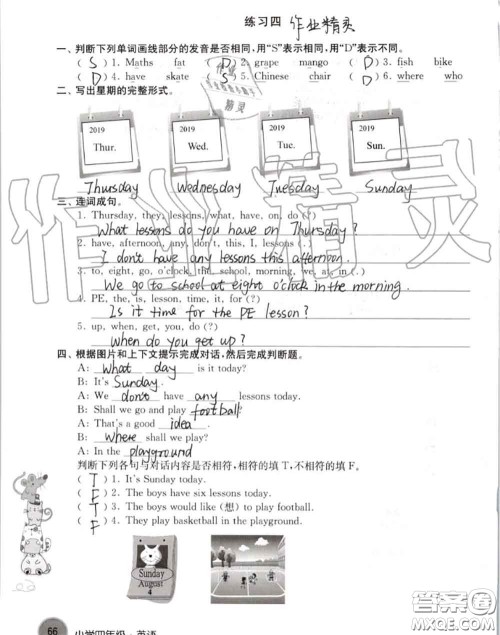 练习四 作业精灵
一、判断下列单词画线部分的发音是否相同,用"S"表示相同,用"D"表示不同。
( S ) 1. Maths fat ( D ) 2. grape mango ( D ) 3. fish bike
( D ) 4. have skate ( S ) 5. Chinese chair ( D ) 6. where who
二、写出星期的完整形式。
2019 2019 2019 2019
Thur. Wed. Tue. Sun.
Thursday Wednesday Tuesday Sunday
三、连词成句。
1. Thursday, they, lessons, what, have, on, do (?)
What lessons do you have on Thursday?
2. have, afternoon, any, don't, this, I, lessons (.)
I don't have any lessons this afternoon.
3. to, eight, go, o'clock, the, school, morning, we, at, in (.)
We go to school at eight o'clock in the morning.
4. PE, the, is, lesson, time, it, for (?)
Is it time for the PE lesson?
5. up, when, get, you, do (?)
When do you get up?
四、根据图片和上下文提示完成对话,然后完成判断题。
A: What day is it today?
B: It's Sunday.
A: We don't have any lessons today.
B: Shall we go and play football?
A: That's a good idea.
B: Where shall we play?
A: In the playground
判断下列各句与对话内容是否相符,相符的填 T,不相符的填 F。
( T ) 1. It's Sunday today.
( F ) 2. The boys have six lessons today.
( T ) 3. The boys would like (想) to play football.
( F ) 4. They play basketball in the playground.
Sunday
August
4
66 小学四年级·英语
答案圈
MXQE.COM
作业精灵